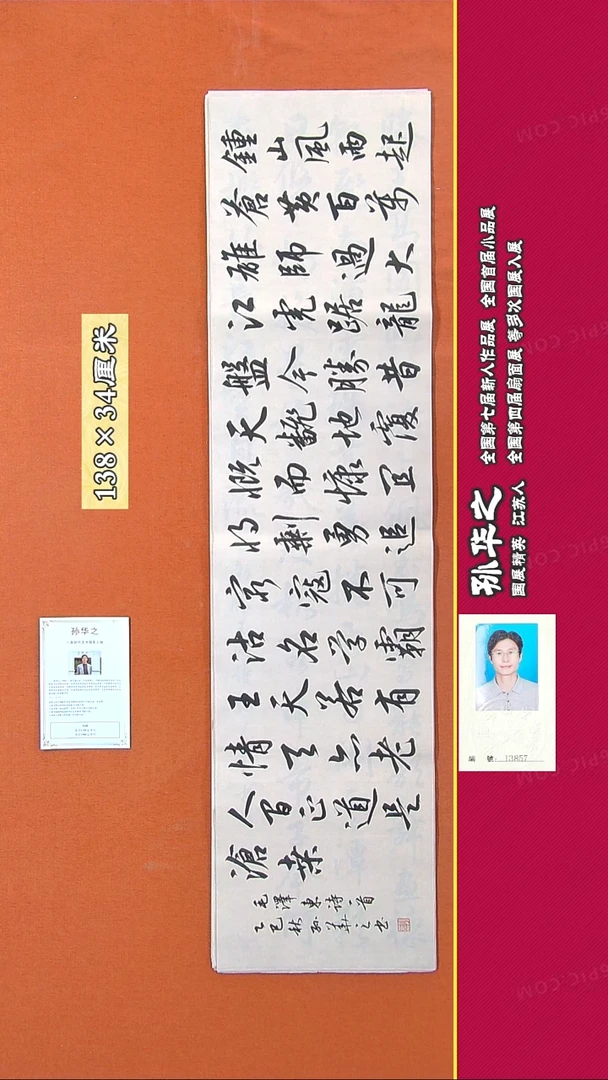 138×34厘米
鍾山風雨起
蒼黃百萬
雄師過大
江虎踞龍
盤今勝昔
天翻地覆
慨而慷宜
將剩勇追
窮寇不可
沽名学霸
王天若有
情天亦老
人間正道是
滄桑
毛澤東诗一首
乙巳秋孙華之书
孙华之
孙华之
全国第七届新人作品展 全国首届小品展
国展精英 江苏人 全国第四届扇面展 等多次国展入展
编 號: 13857